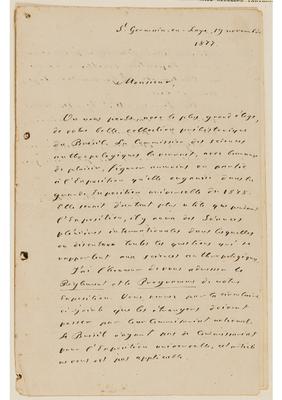 St Germain-en-Laye, 19 novembre
1877.
Monsieur,
On nous parle, avec le plus grand éloge,
de votre belle collection préhistorique
du Brésil. La Commission des sciences
anthropologiques la verrait, avec beaucoup
de plaisir, figurer en partie
à l'Exposition qu'elle organise dans la
grande Exposition universelle de 1878.
Elle serait d'autant plus utile que pendant
l'Exposition, il y aura des Séances
plénières internationales dans lesquelles
on discutera toutes les questions qui se
rapportent aux sciences anthropologiques.
J'ai l'honneur de vous adresser le
Règlement et le Programme de notre
Exposition. Vous verrez par la circulaire
ci-jointe que les étrangers doivent
passer par leur Commissariat national.
Le Brésil n'ayant pas de Commissariat
pour l'Exposition universelle, cet article
ne vous est pas applicable.